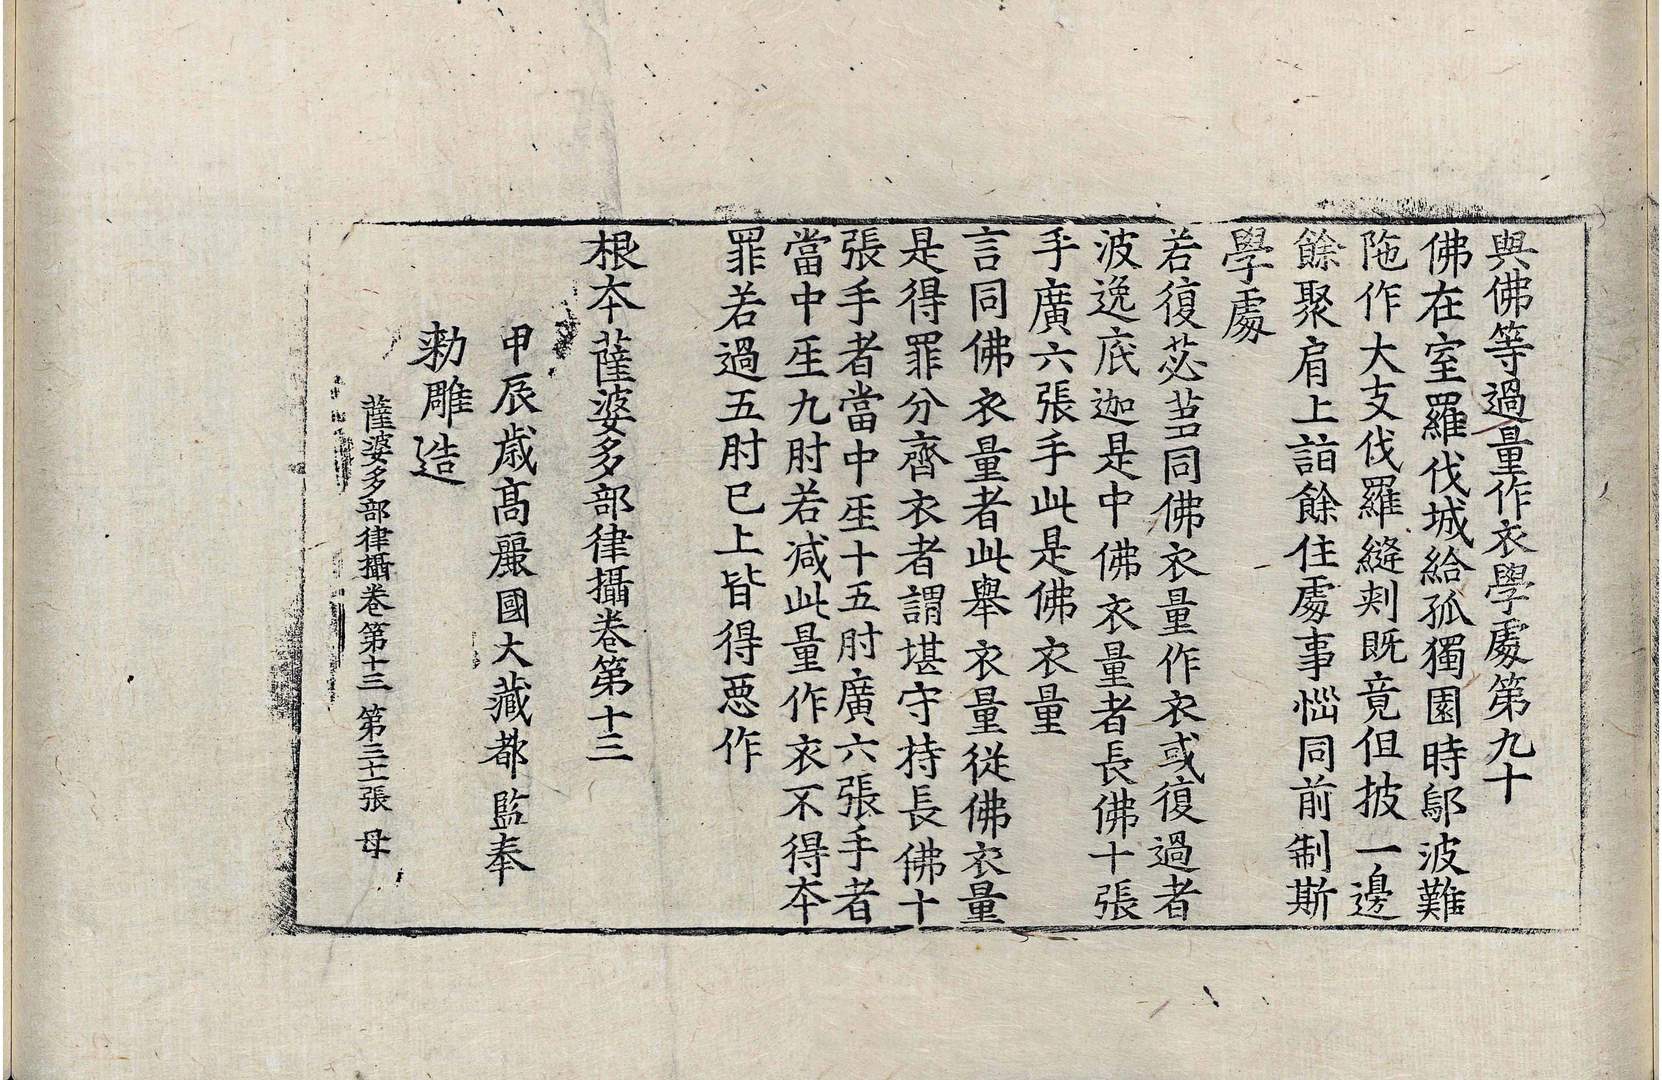 與佛等過量作衣學處第九十
佛在室羅伐城給孤獨園時鄔波難
陁作大支伐羅縫刾既竟但披一邊
餘聚肩上詣餘住處事惱同前制斯
學處
若復苾芻同佛衣量作衣或復過者
波逸底迦是中佛衣量者長佛十張
手廣六張手此是佛衣量
言同佛衣量者此舉衣量從佛衣量
是得罪分齊衣者謂堪守持長佛十
張手者當中𤯔十五肘廣六張手者
當中𤯔九肘若减此量作衣不得夲
罪若過五肘已上皆得惡作
根夲薩婆多部律攝卷第十三
甲辰歳髙麗國大藏都監奉
勑雕造
薩婆多部律攝卷第十三 第三十一張 母